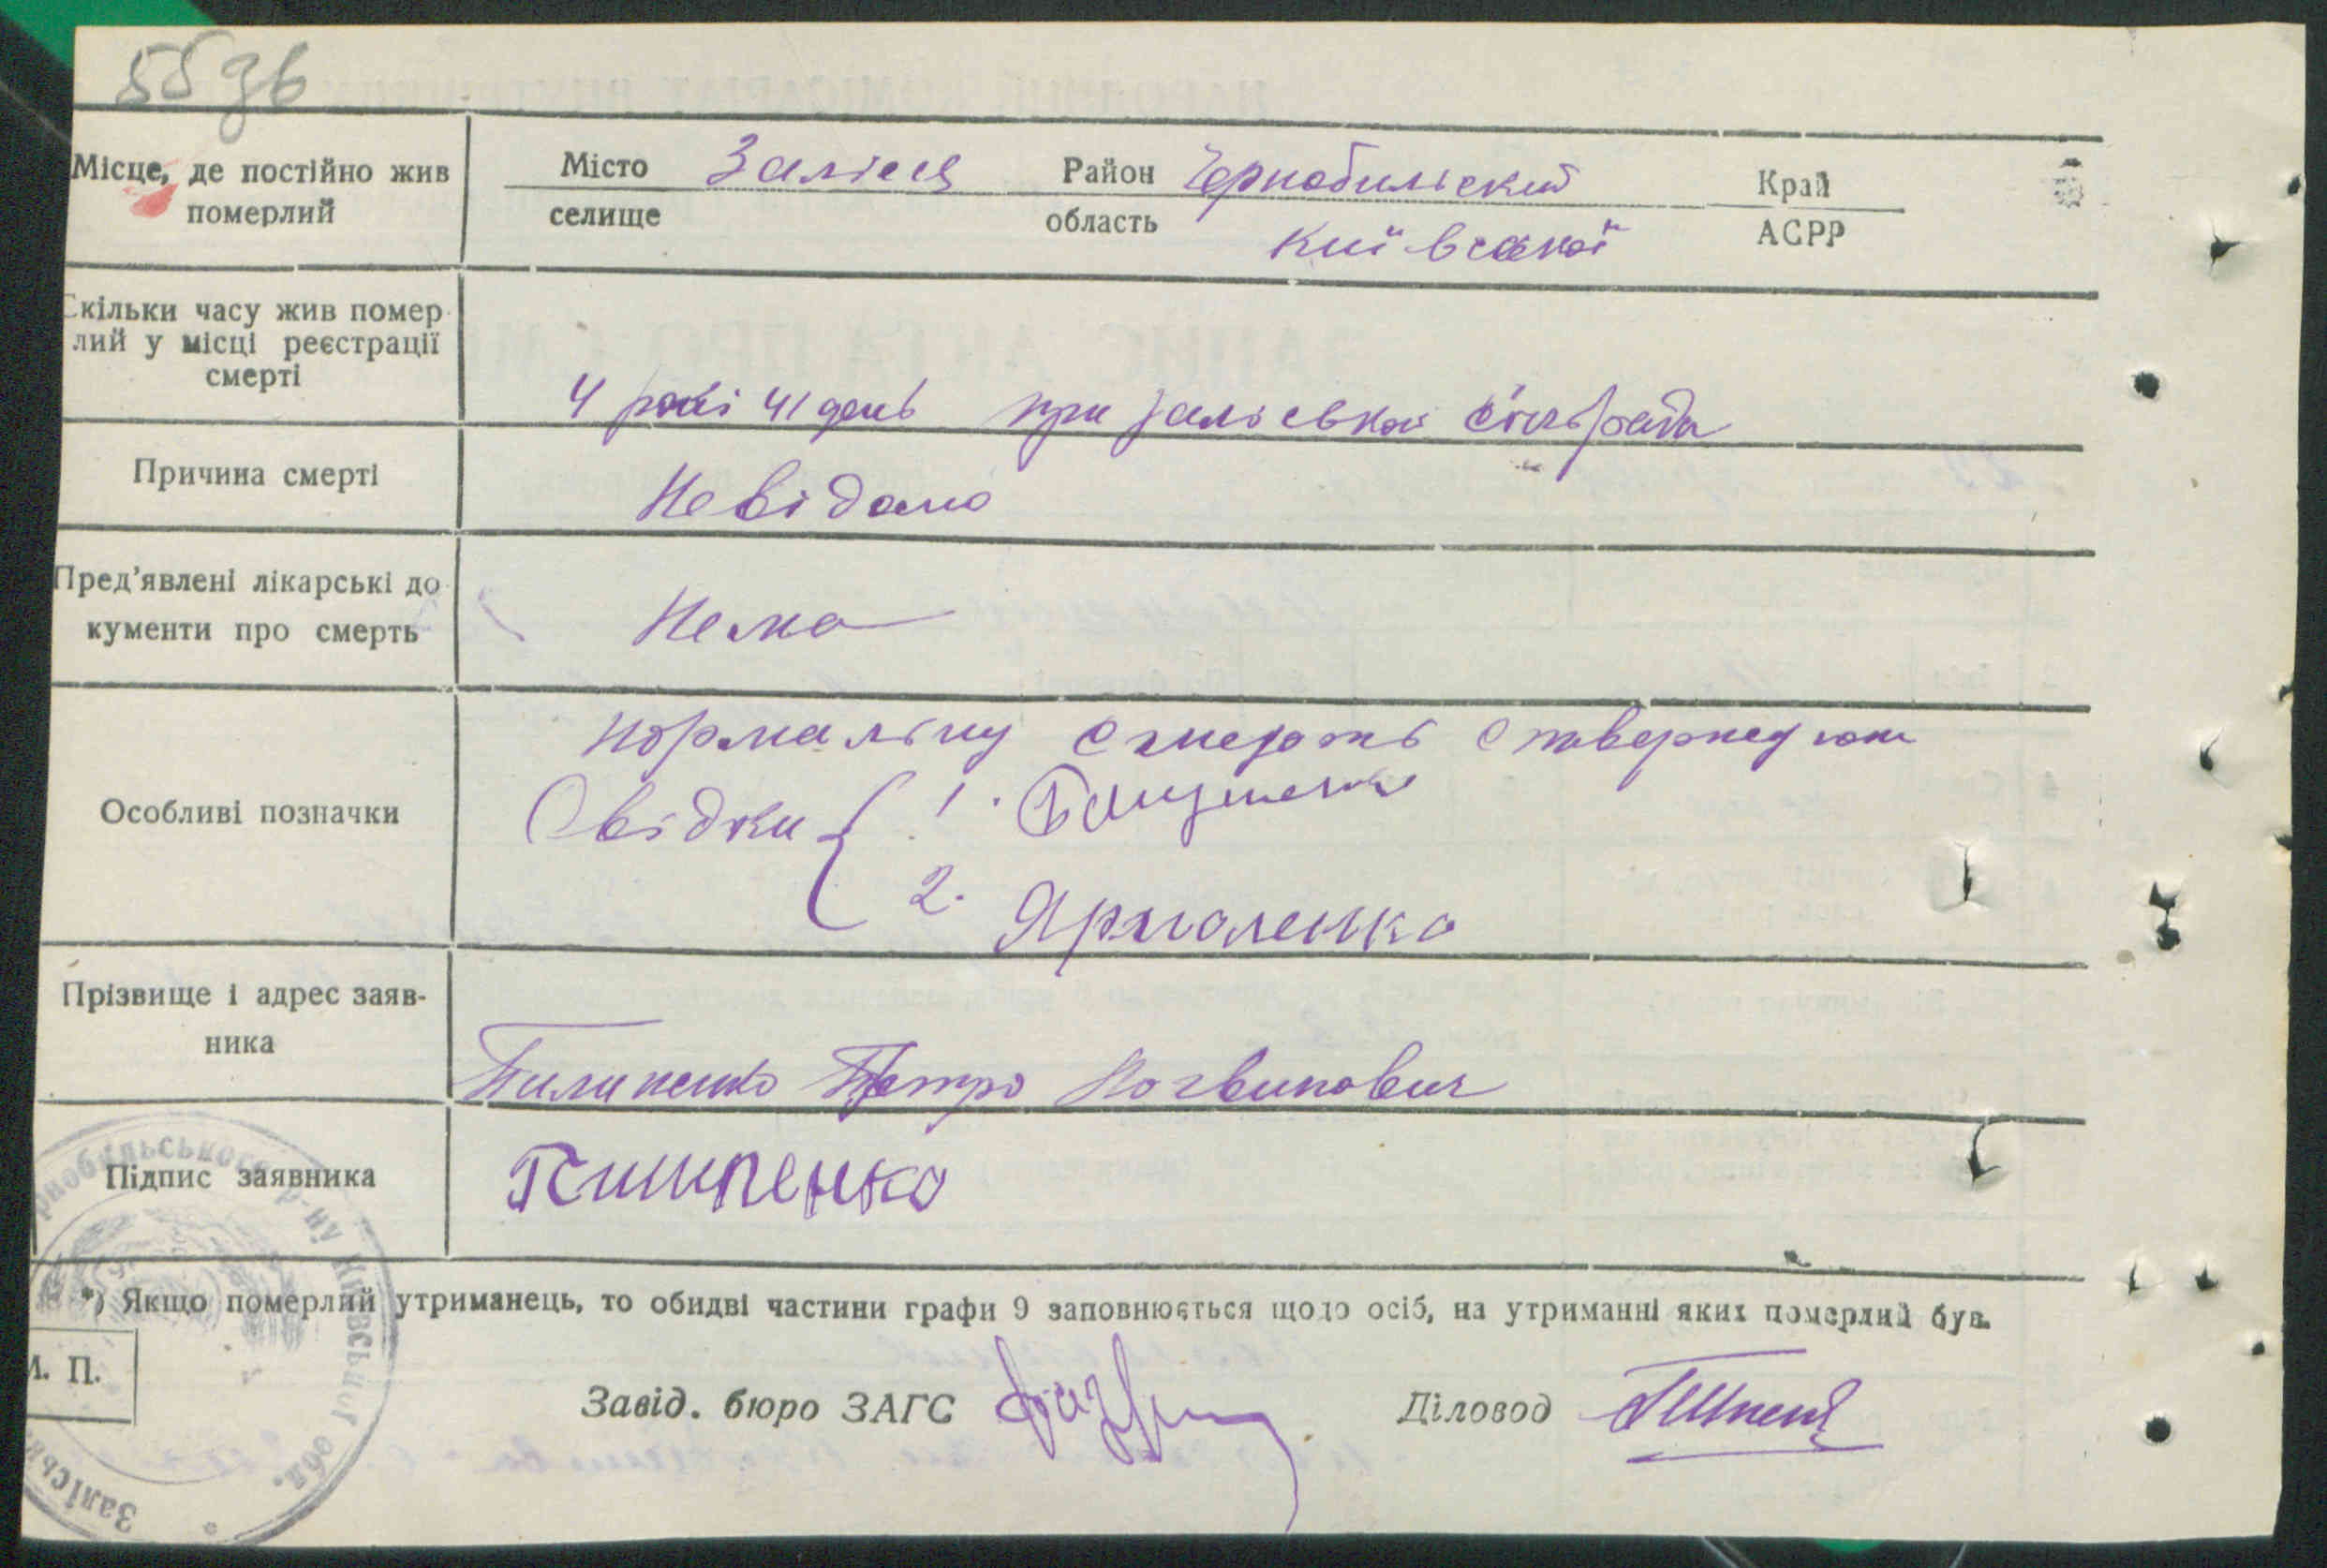 55 зв
Місце, де постійно жив
померлий
Місто Залісся Район Чернобильский Край
селище область Київської АСРР
Скільки часу жив помер
лий у місці реєстрації
смерті
4 рокі 41 день при заліській сільради
Причина смерті
Невідомо
Пред'явлені лікарські до
кументи про смерть
Нема
Особливі позначки
нормальну смерть стверждают
Свідки { 1.
2. Ярмоленко
Прізвище і адрес заяв-
ника
Пилипенко Петро Логвинович
Підпис заявника
Пилипенко
*) Якщо померлий утриманець, то обидві частини графи 9 заповнюється щодо осіб, на утриманні яких померлий був.
М. П.
Завід. бюро ЗАГС
Діловод
рнобильського р-ну Київської обл.
Заліськ